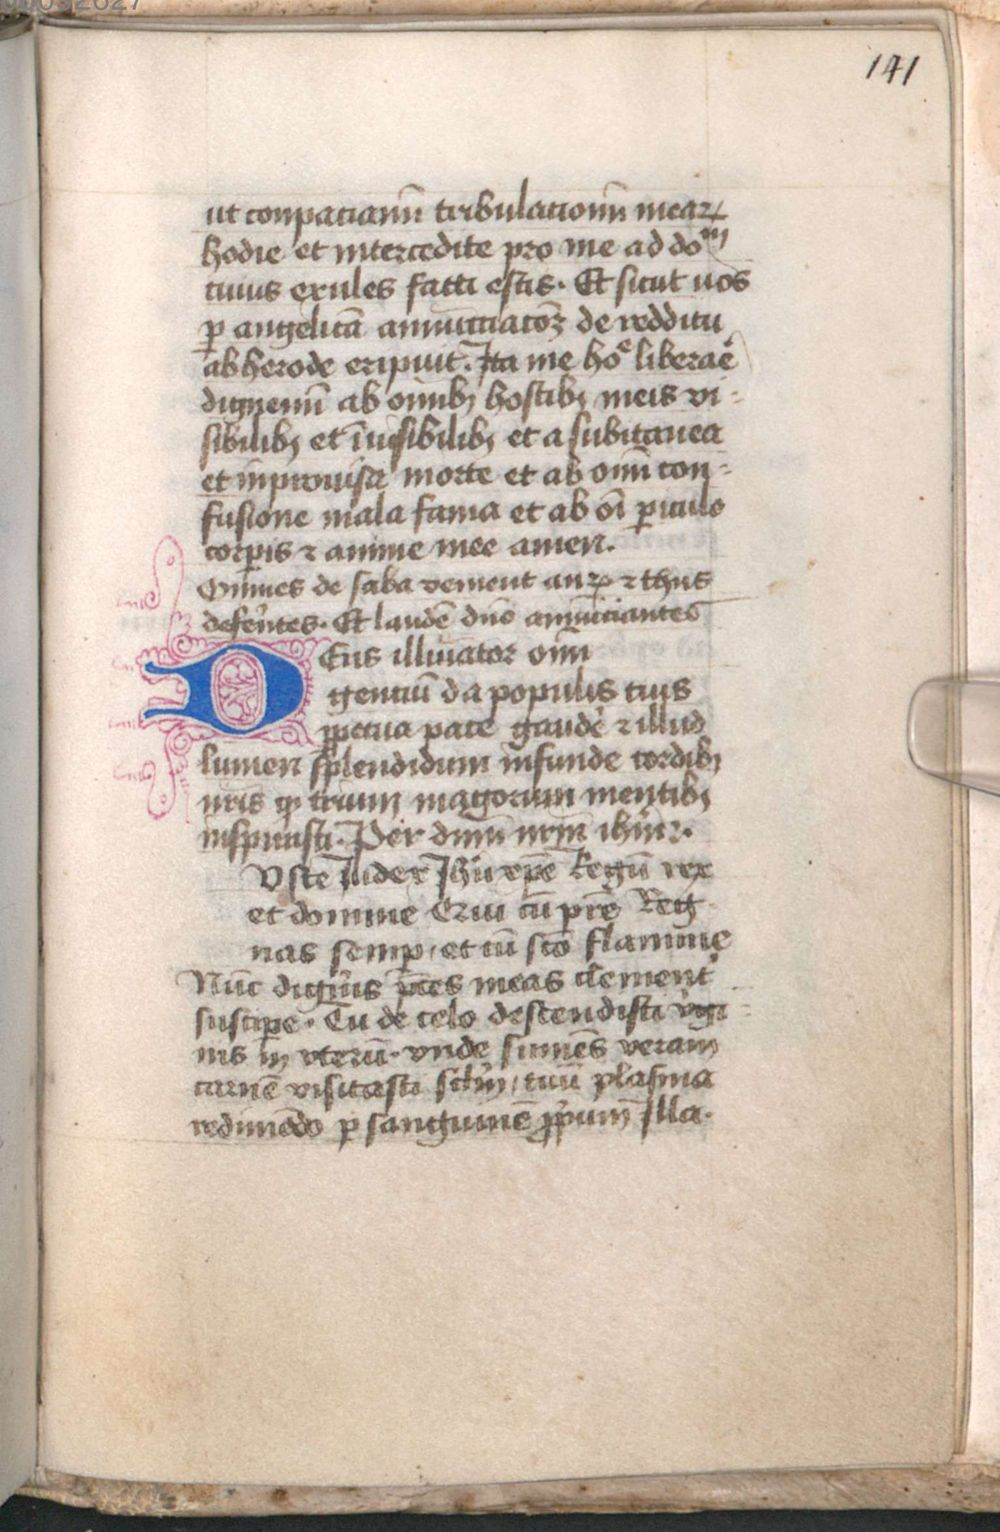 141
ut conpaciamī tribulacionū mearꝝ
hodie et intercedite pro me ad doᵐ
cuius exules facti estis. Et sicut uos
ꝑ angelicā annūcciacōeꝫ de redditu
ab herode eripuit. Ita me hoᵉ liberaē
dignemī ab om̄ibꝫ hostibꝫ meis vi-
sibilibꝫ et īuisibilibꝫ et a subitanea
et inprouisa morte et ab om̄i con-
fusione mala fama et ab oī piculo
corpis ⁊ anime mee amen.
Omnes de saba venient auꝝ ⁊ thus
deferētes. Et laudē dn̄o annūcciantes
Deus illumator om̄i
gentiū da populis tuis
ꝑpetua pace gaudē ⁊ illud
lumen splendidum infunde cordibꝫ
nr̄is qͥ trium magorum mentibꝫ
inspirasti. Per dn̄m nr̄m ih̄m ⁊.
Uste Iudex Ih̄u xp̄e Regū rex
et domine Qui cū pr̄e Reg-
nas semꝑ et cū sc̄o flamine
Nūc digneris p̄ces meas clement᾽
suscipe. Tu de celo descendisti v̄gi-
nis in vterū. vnde sumēs veram
carnē visitasti sc̄l̄m, tuū plasma
redimēdo ꝑ sanguinē ꝓprium Illa.